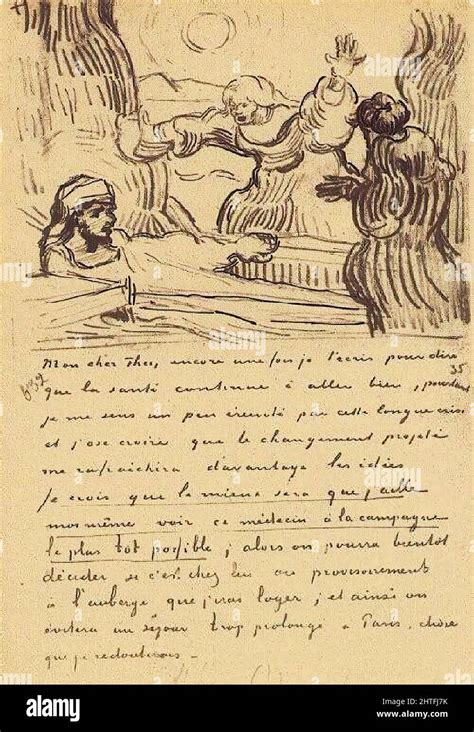 alamy
Mon cher Theo, encore une fois je t'écris pour dire
que la santé continue à aller bien, pourtant
35
je me sens un peu éreinté par cette longue crise
et j'ose croire que le changement projeté
me rafraichira davantage les idées
Je crois que le mieux sera que j'aille
moi même voir ce médecin à la campagne
le plus tôt possible; alors on pourra bientôt
décider si c'est chez lui ou provisoirement
à l'auberge que j'irai loger; et ainsi on
évitera un séjour trop prolongé à Paris, chose
que je redouterais –
alamy
Image ID: 2HTFJ7K
www.alamy.com